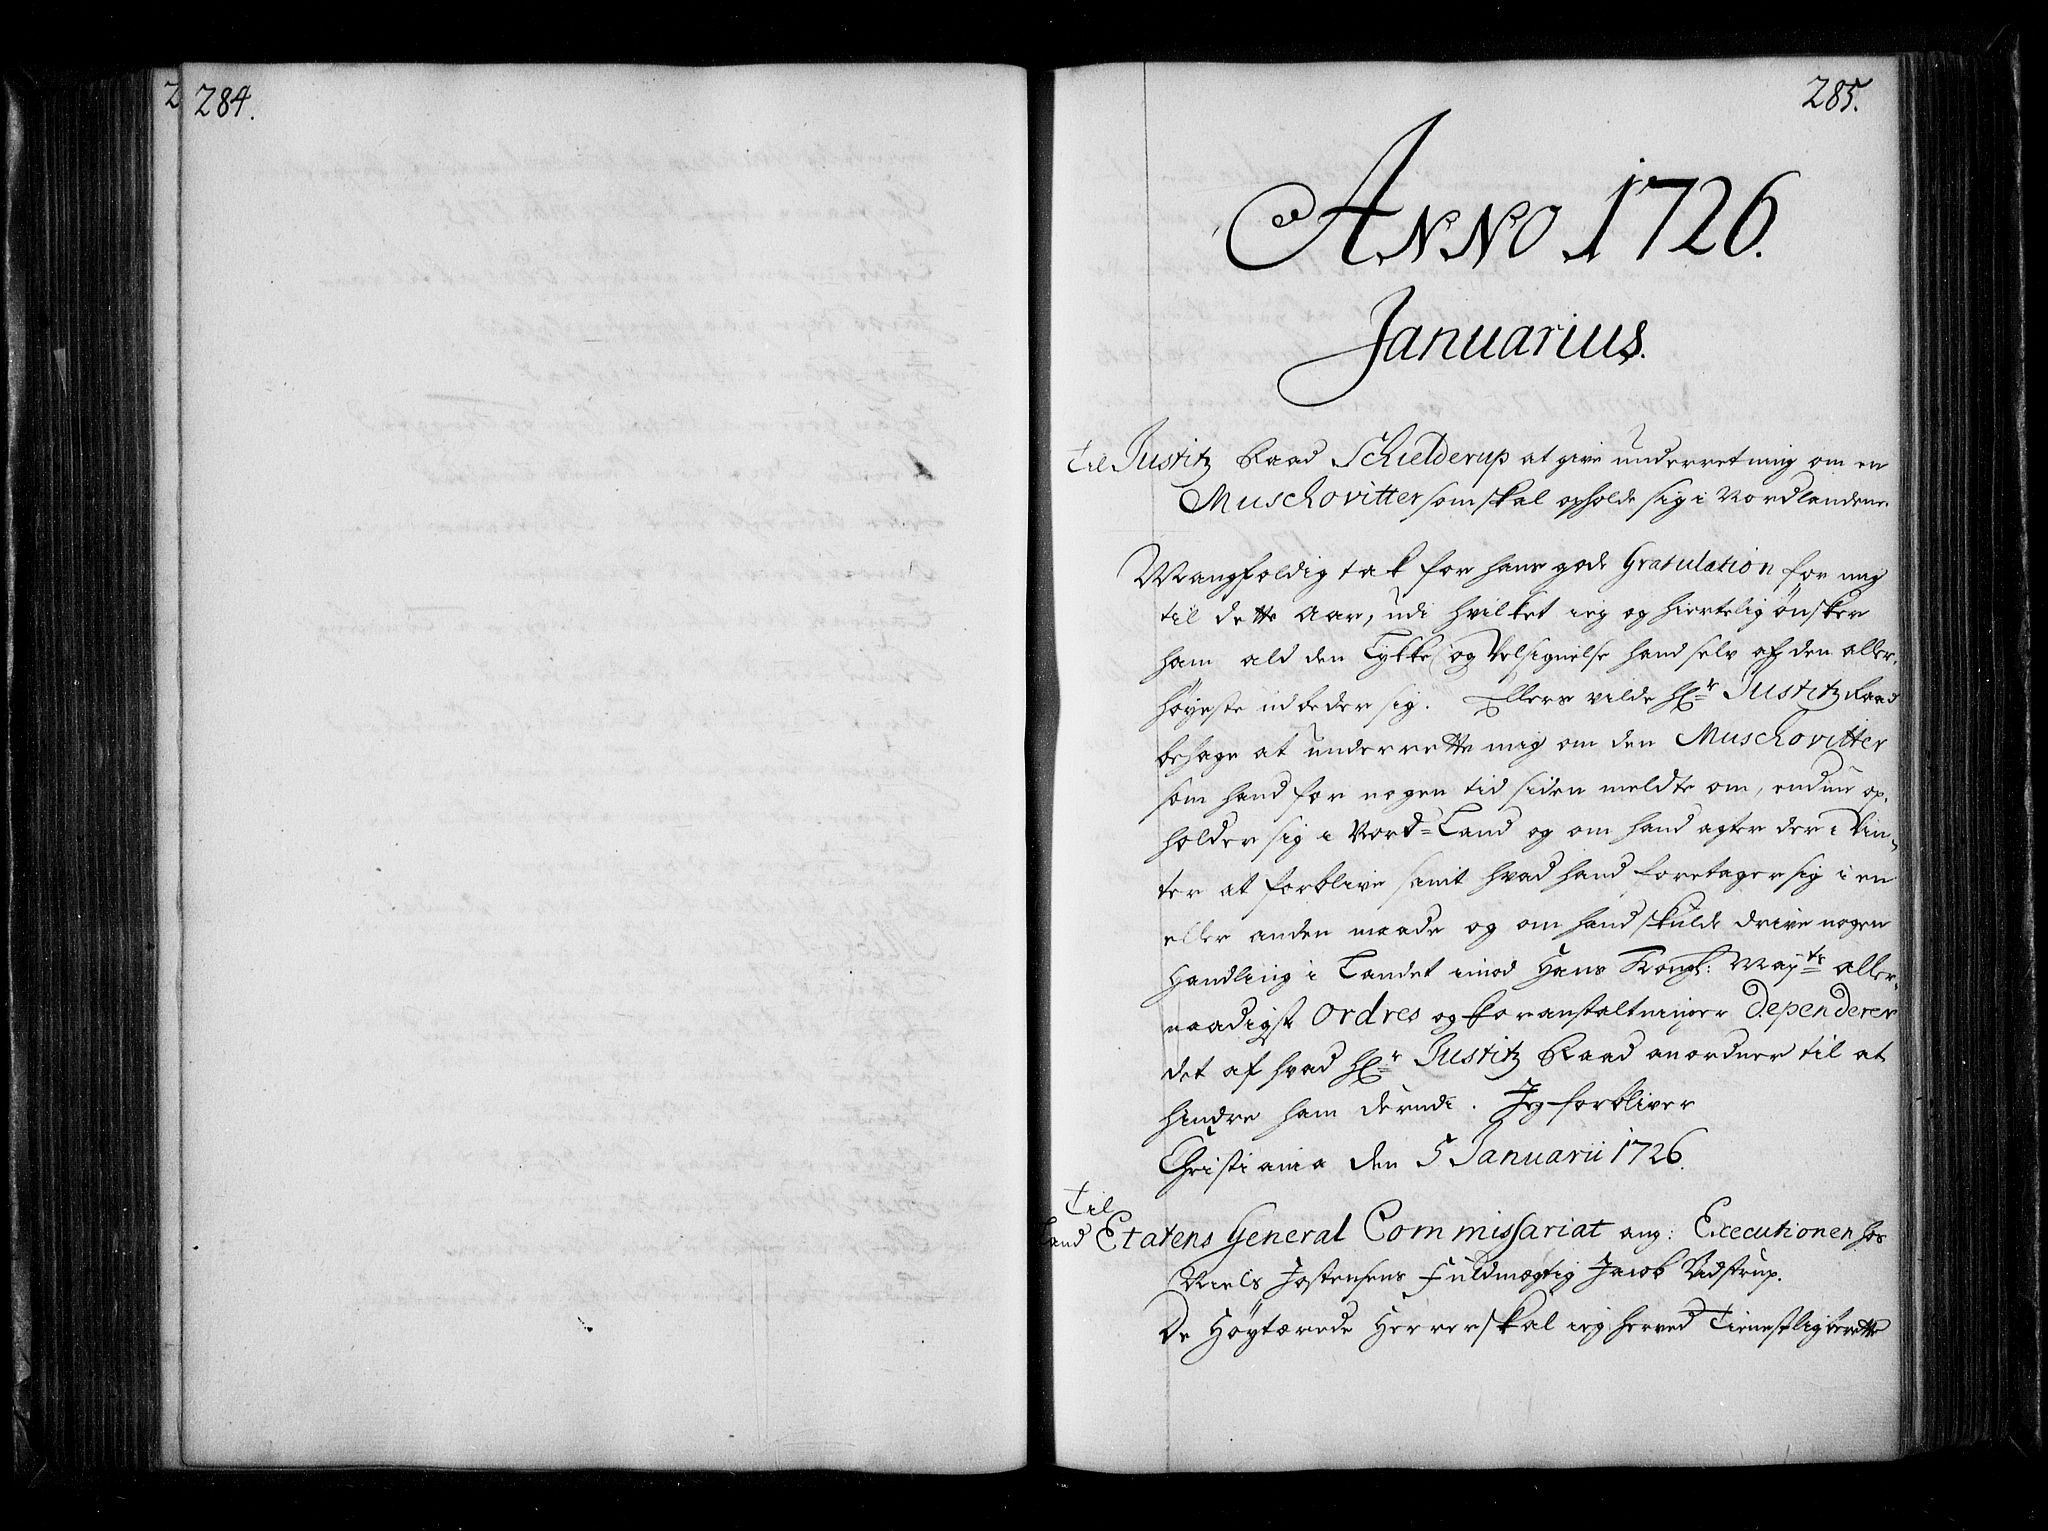 284.
285.
Anno 1726.
Januarius.
Til Justitz Raad Schielderup at give underretning om en
Muschovitter som skal opholde sig i Nordlandene.
Mangfoldig tak for hans gode Gratulation for mig
til dette Aar, udi hvilket ieg og hiertelig ønsker
ham ald den Lykke og Velsignelse hand selv af den aller-
høyeste udbeder sig. Ellers vilde Hr. Justitz Raad
behage at underrette mig om den Muschovitter
som hand for nogen tid siden meldte om, endnu op-
holder sig i Nord-Land og om hand agter der i Vin-
ter at forblive samt hvad hand foretager sig i en
eller anden maade og om hand skulde drive nogen
Handling i Landet imod Hans Kongl: Mayts aller-
naadigst Ordres og foranstaltninger Dependerer
det af hvad Hr. Justitz Raad anordner til at
hindre ham derudi. Jeg forbliver
Christiania den 5 Januarii 1726.
Til
Land Etatens General Commissariat ang: Executionen hos
Niels Jostensens Fuldmægtig Jacob Vidstrup.
De Høytærede Herrer skal ieg herved Tienstlig berette